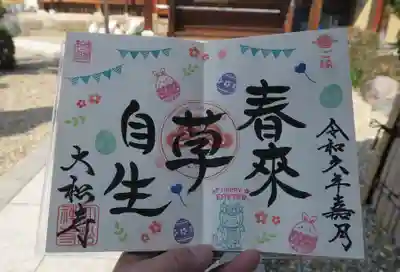 ご縁
令和六年嘉月
春來
草
自生
大松寺
HAPPY
EASTER